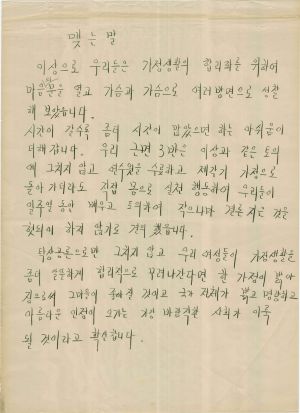 맺는 말
이상으로 우리들은 가정생활의 합리화를 위하여
마음문을 열고 가슴과 가슴으로 여러방면으로 성찰
해 보았습니다.
시간이 갈수록 좀더 시간이 많았으면 하는 아쉬움이
더해집니다. 우리 근면 3반은 이상과 같은 토의
에 그치지 않고 연수원을 수료하고 제각기 가정으로
돌아 가더라도 직접 몸으로 실천 행동하여 우리들이
일주일 동안 배우고 토의하여 작으나마 결론 지은 것을
헛되이 하지 않기로 결의 했습니다.
탁상공론으로만 그치지 않고 우리 여성들이 가정생활을
좀더 알뜰하게 합리적으로 꾸려나간다면 한 가정이 밝아
짐으로써 그마을이 밝아질 것이고 국가 전체가 밝고 명랑하고
아름다운 인정이 오가는 가장 바람직한 사회가 이룩
될 것이라고 확신합니다.